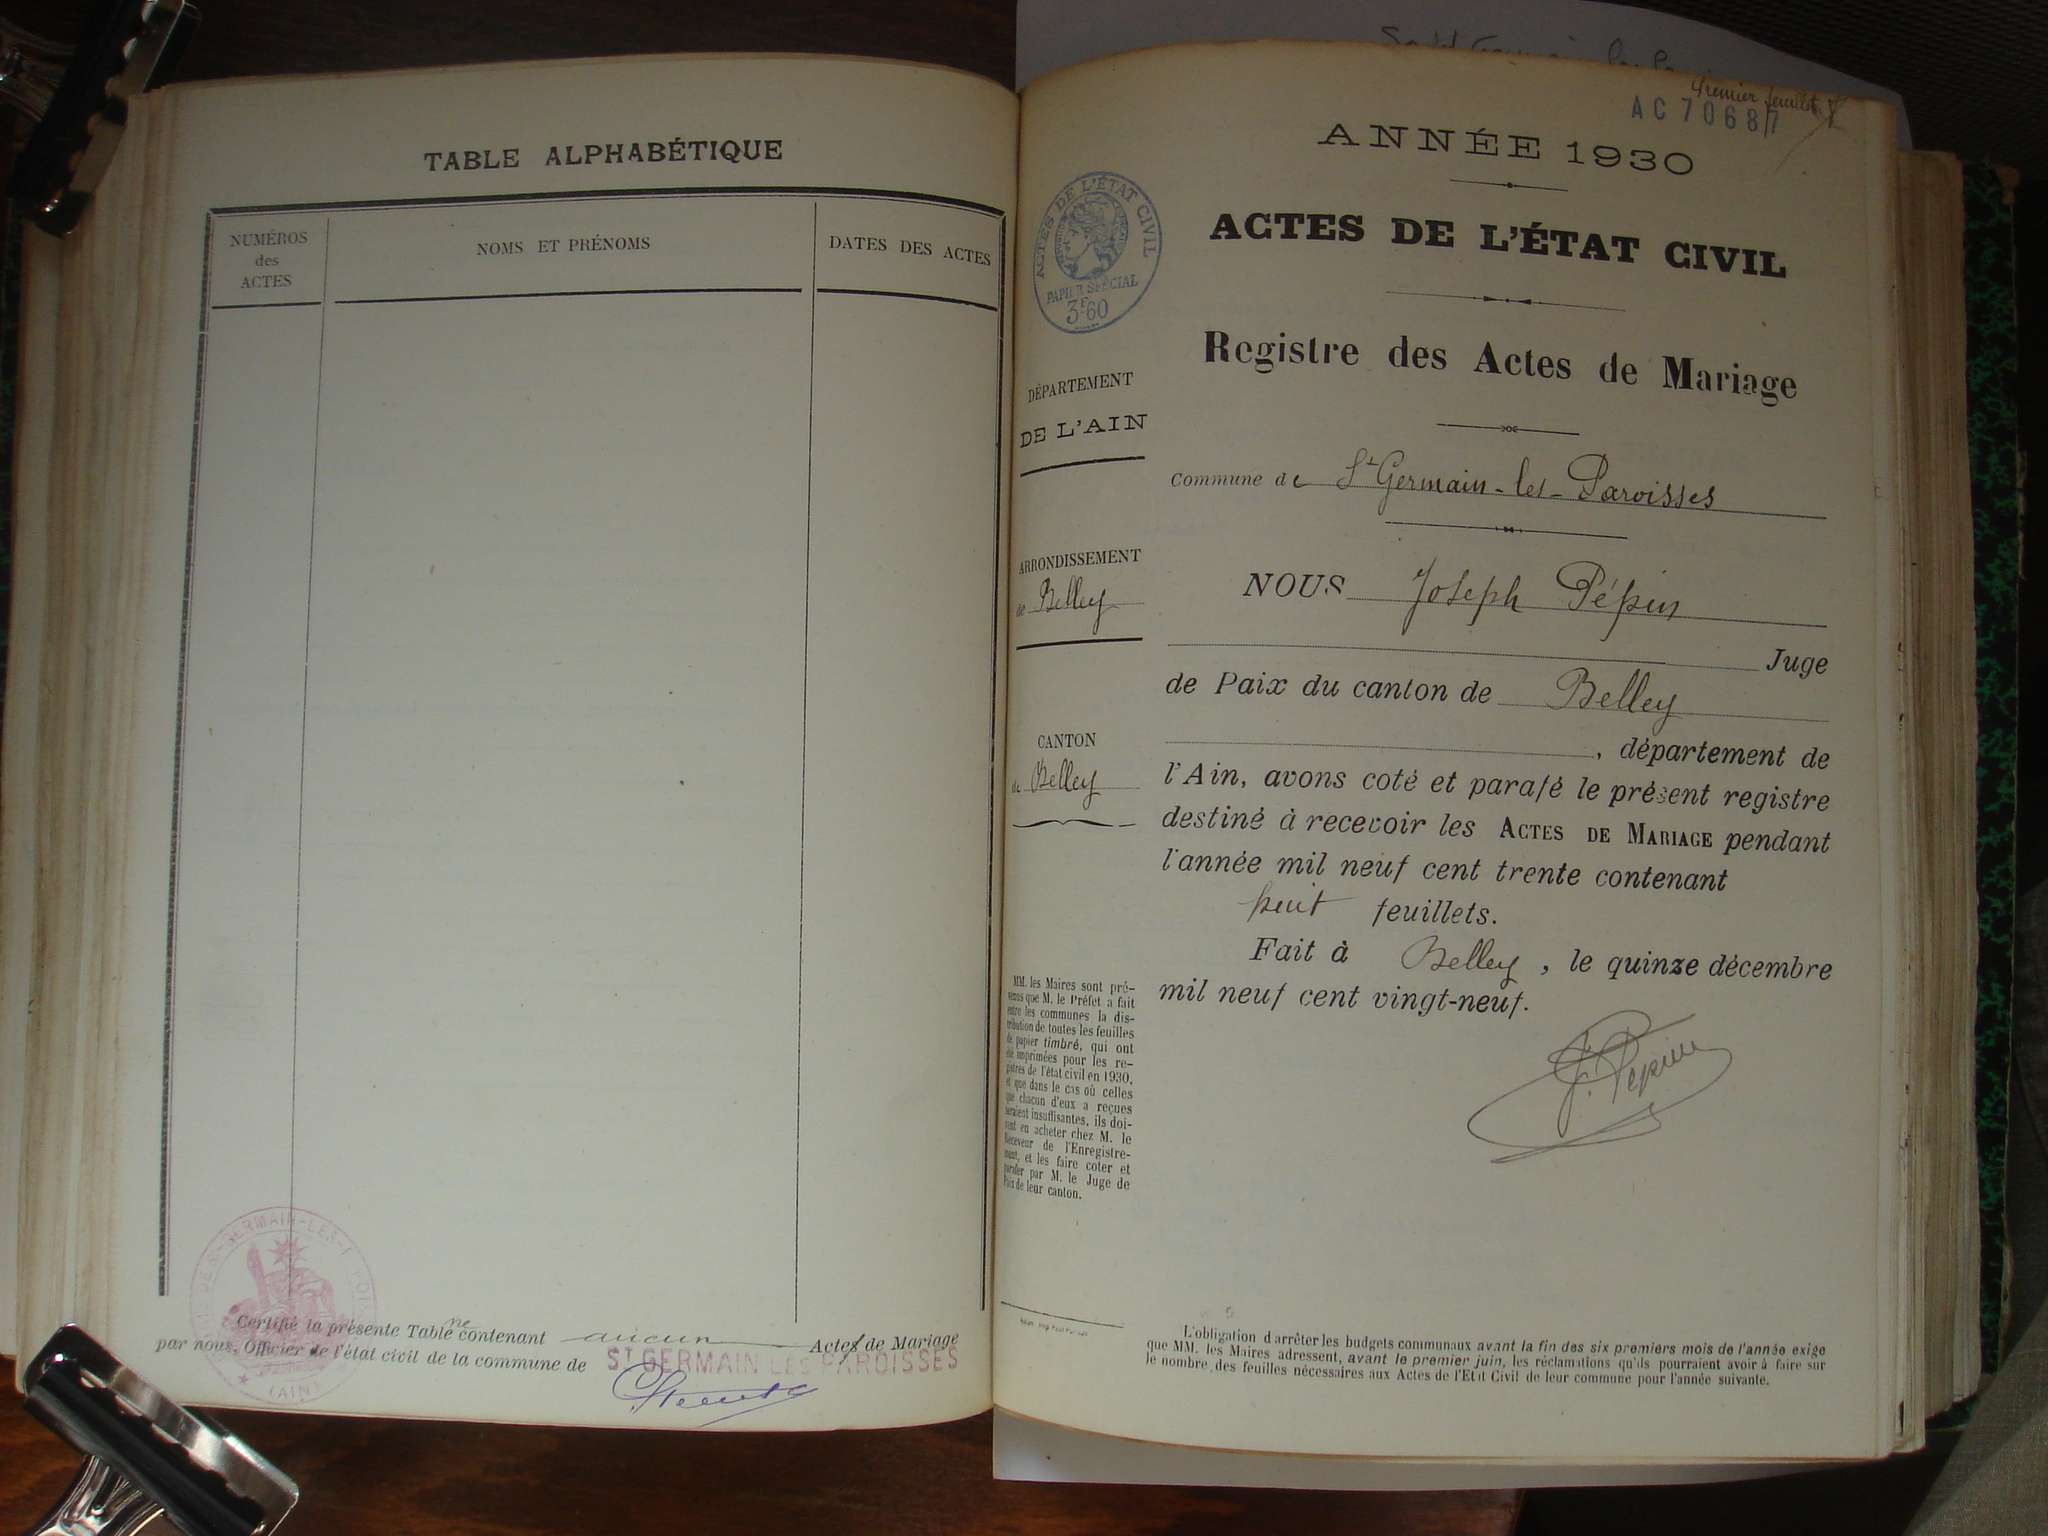 TABLE ALPHABÉTIQUE
NUMÉROS
des
ACTES
NOMS ET PRÉNOMS
DATES DES ACTES
Certifié la présente Table ne contenant aucun Actes de Mariage
par nous, Officier de l'état civil de la commune de ST GERMAIN LES PAROISSES
(AIN)
Premier feuillet
AC 70687
ANNÉE 1930
ACTES DE L'ÉTAT CIVIL
PAPIER SPÉCIAL
3F60
ACTES DE L'ÉTAT CIVIL
Registre des Actes de Mariage
DÉPARTEMENT
DE L'AIN
Commune de St Germain-les-Paroisses
ARRONDISSEMENT
de Belley
NOUS Joseph Pépin
Juge
de Paix du canton de Belley
CANTON
de Belley
, département de
l'Ain, avons coté et parafé le présent registre
destiné à recevoir les ACTES DE MARIAGE pendant
l'année mil neuf cent trente contenant
huit feuillets.
Fait à Belley, le quinze décembre
mil neuf cent vingt-neuf.
J. Pépin
MM. les Maires sont pré-
venus que M. le Préfet a fait
entre les communes la dis-
tribution de toutes les feuilles
de papier timbré, qui ont
été imprimées pour les re-
gistres de l'état civil en 1930,
et que dans le cas où celles
que chacun d'eux a reçues
seraient insuffisantes, ils doi-
vent en acheter chez M. le
Receveur de l'Enregistre-
ment, et les faire coter et
parafer par M. le Juge de
Paix de leur canton.
L'obligation d'arrêter les budgets communaux avant la fin des six premiers mois de l'année exige
que MM. les Maires adressent, avant le premier juin, les réclamations qu'ils pourraient avoir à faire sur
le nombre des feuilles nécessaires aux Actes de l'Etat Civil de leur commune pour l'année suivante.